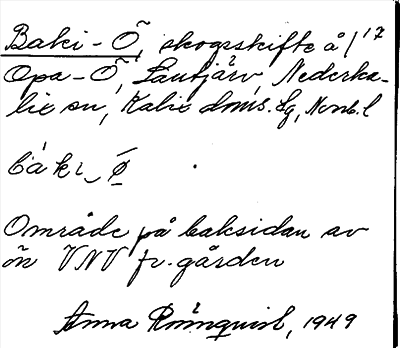 Baki-Ö, skogsskifte å 1/17
Opa-Ö, Lantjärv, Nederka-
lix sn, Kalix doms. Lg, Nonb. l
bàki‿ Ö̲
Område på baksidan av
ön VNV fr. gården
Anna Rönnqvist, 1949